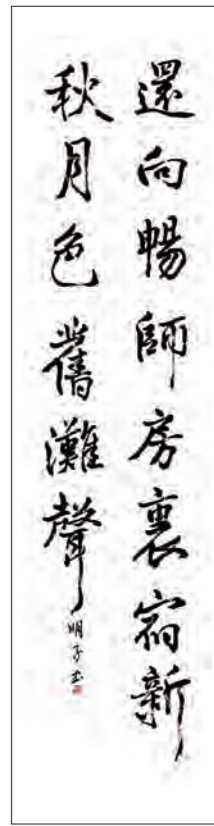 還向暢師房裏宿新
秋月色舊灘聲
明子書